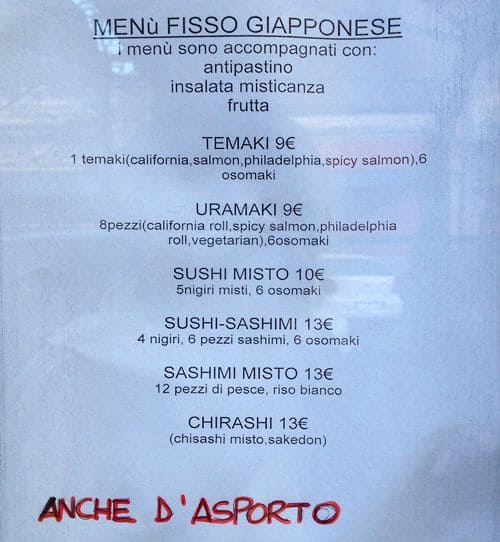 MENù FISSO GIAPPONESE
i menù sono accompagnati con:
antipastino
insalata misticanza
frutta
TEMAKI 9€
1 temaki(california,salmon,philadelphia,spicy salmon),6
osomaki
URAMAKI 9€
8pezzi(california roll,spicy salmon,philadelphia
roll,vegetarian),6osomaki
SUSHI MISTO 10€
5nigiri misti, 6 osomaki
SUSHI-SASHIMI 13€
4 nigiri, 6 pezzi sashimi, 6 osomaki
SASHIMI MISTO 13€
12 pezzi di pesce, riso bianco
CHIRASHI 13€
(chisashi misto,sakedon)
ANCHE D'ASPORTO